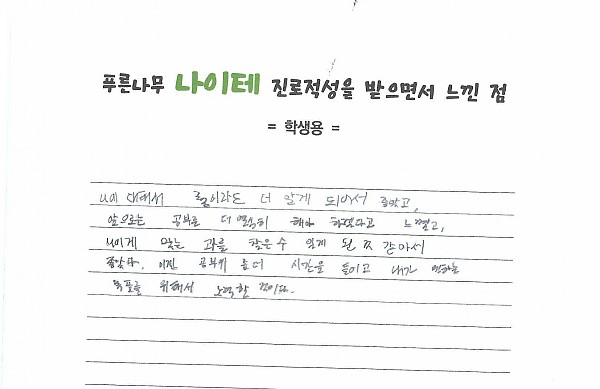 푸른나무 나이테 진로적성을 받으면서 느낀 점
= 학생용 =
나에 대해서 더 알게 되어서 좋았고,
앞으로는 공부를 더 열심히 해야 하겠다고 느꼈고,
나에게 맞는 과를 찾은수 있게 된 것 같아서
좋았다. 이젠 공부에 좀더 시간을 들이고 내가 원하는
목표를 위해서 노력할 것이다.